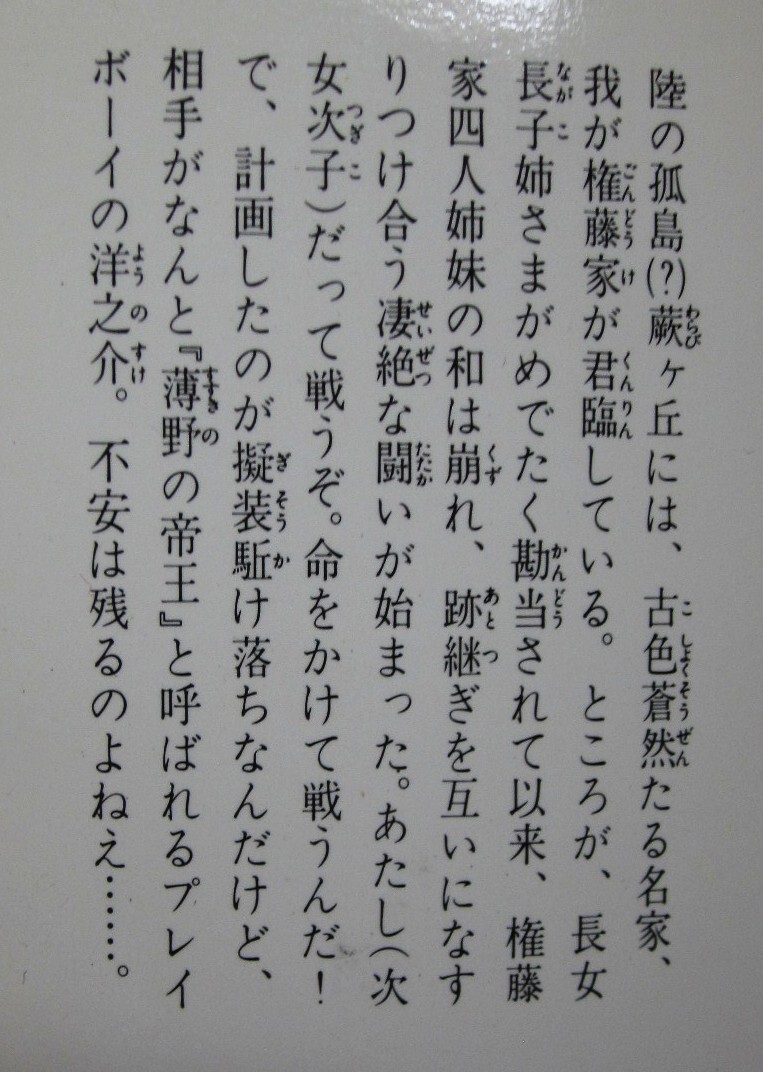 陸の孤島(?)蕨ヶ丘には、古色蒼然たる名家、
我が権藤家が君臨している。ところが、長女
長子姉さまがめでたく勘当されて以来、権藤
家四人姉妹の和は崩れ、跡継ぎを互いになす
りつけ合う凄絶な闘いが始まった。あたし(次
女次子)だって戦うぞ。命をかけて戦うんだ!
で、計画したのが擬装駈け落ちなんだけど、
相手がなんと『薄野の帝王』と呼ばれるプレイ
ボーイの洋之介。不安は残るのよねえ……。